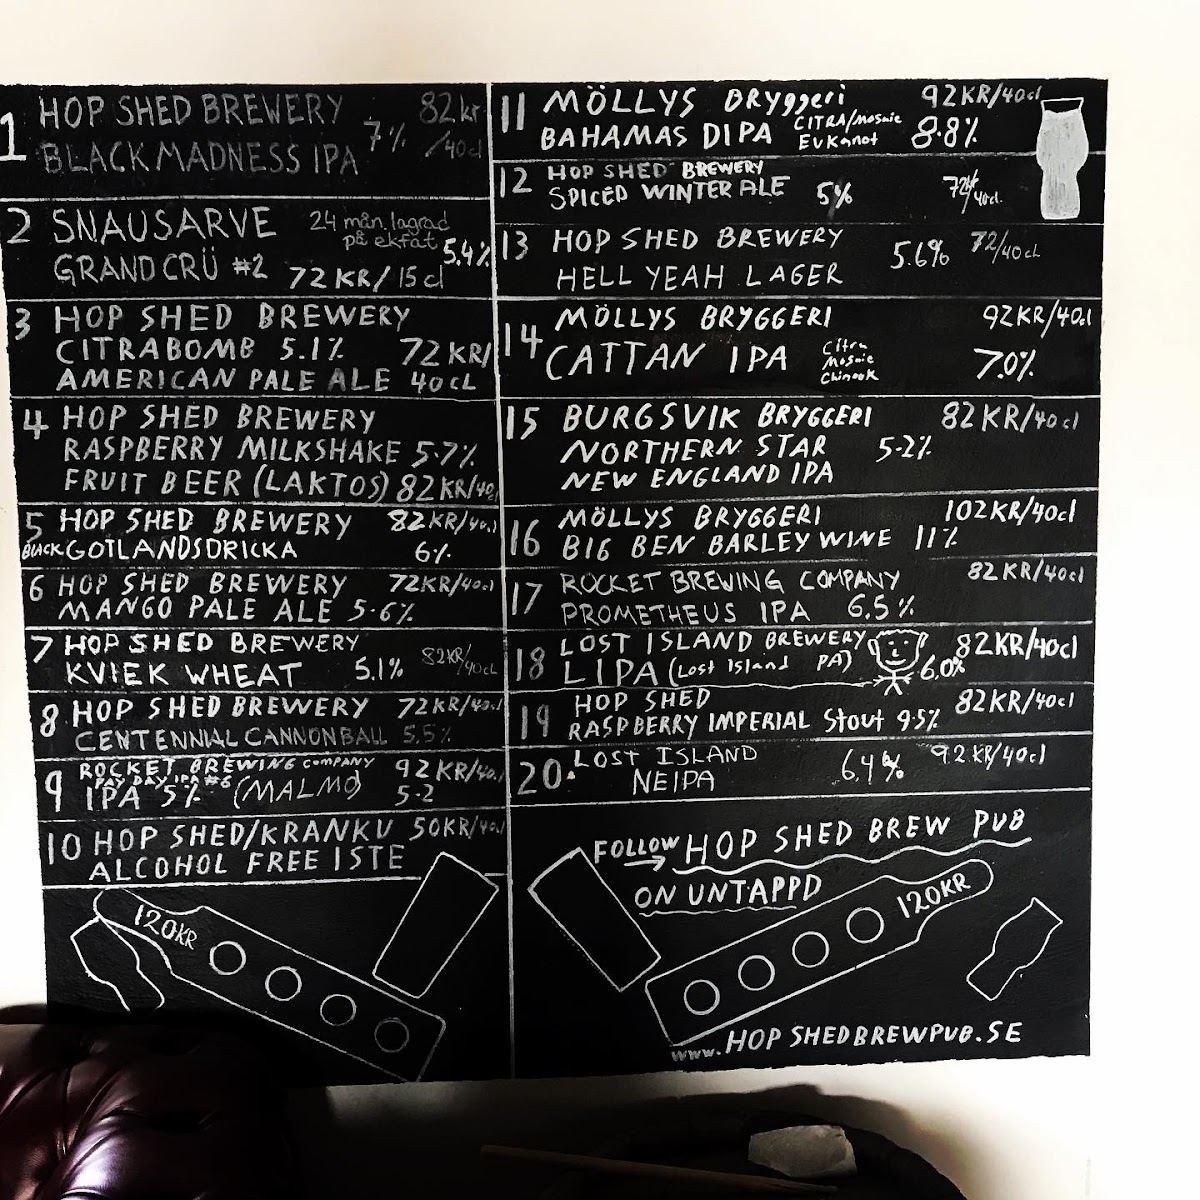 1 HOP SHED BREWERY 82kr
BLACK MADNESS IPA 7% /40cl
2 SNAUSARVE 24 mån. lagrad
på ekfat
GRAND CRÜ #2 5.4%
72 KR/15cl
3 HOP SHED BREWERY
CITRABOMB 5.1% 72 KR/
AMERICAN PALE ALE 40CL
4 HOP SHED BREWERY
RASPBERRY MILKSHAKE 5.7%
FRUIT BEER (LAKTOS) 82KR/40cl
5 HOP SHED BREWERY 82KR/40cl
BLACK GOTLANDSDRICKA 6%
6 HOP SHED BREWERY 72KR/40cl
MANGO PALE ALE 5.6%
7 HOP SHED BREWERY
KVIEK WHEAT 5.1% 82KR/40cl
8 HOP SHED BREWERY 72KR/40cl
CENTENNIAL CANNONBALL 5.5%
9 ROCKET BREWING COMPANY 92KR/40cl
PAY DAY IPA #6
IPA 5% (MALMÖ) 5.2
10 HOP SHED/KRANKU 50KR/40cl
ALCOHOL FREE ISTE
120KR
11 MÖLLYS BRYggeri 92KR/40cl
BAHAMAS DIPA CITRA/Mosaic
EvKanot 8.8%
12 HOP SHED BREWERY
SPICED WINTER ALE 5% 72kr/40cl
13 HOP SHED BREWERY 5.6% 72/40cl
HELL YEAH LAGER
14 MÖLLYS BRYGGERI 92KR/40cl
CATTAN IPA Citra
Mosaic
Chinook 7.0%
15 BURGSVIK BRYGGERI 82KR/40cl
NORTHERN STAR 5.2%
NEW ENGLAND IPA
16 MÖLLYS BRYGGERI 102KR/40cl
BIG BEN BARLEY WINE 11%
17 ROCKET BREWING COMPANY 82KR/40cl
PROMETHEUS IPA 6.5%
18 LOST ISLAND BREWERY 82KR/40cl
LIPA (Lost Island PA) 6.0%
19 HOP SHED 82KR/40cl
RASPBERRY IMPERIAL Stout 9.5%
20. LOST ISLAND 6.4% 92KR/40cl
NEIPA
FOLLOW HOP SHED BREW PUB
ON UNTAPPD
120KR
www.HOPSHEDBREWPUB.SE